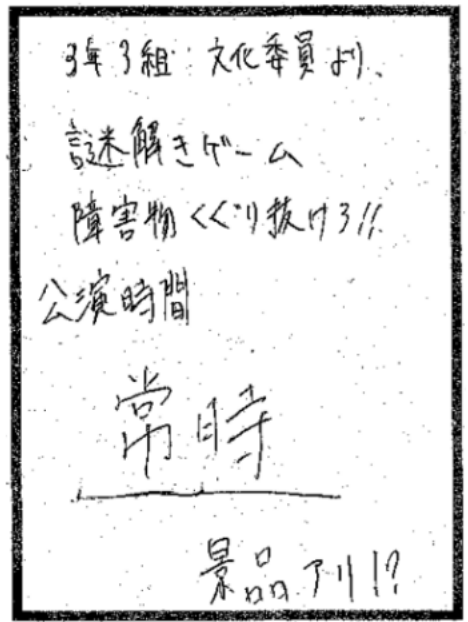 3年3組 文化委員より、
謎解きゲーム
障害物くぐり抜けろ!!
公演時間
常時
景品アリ!?